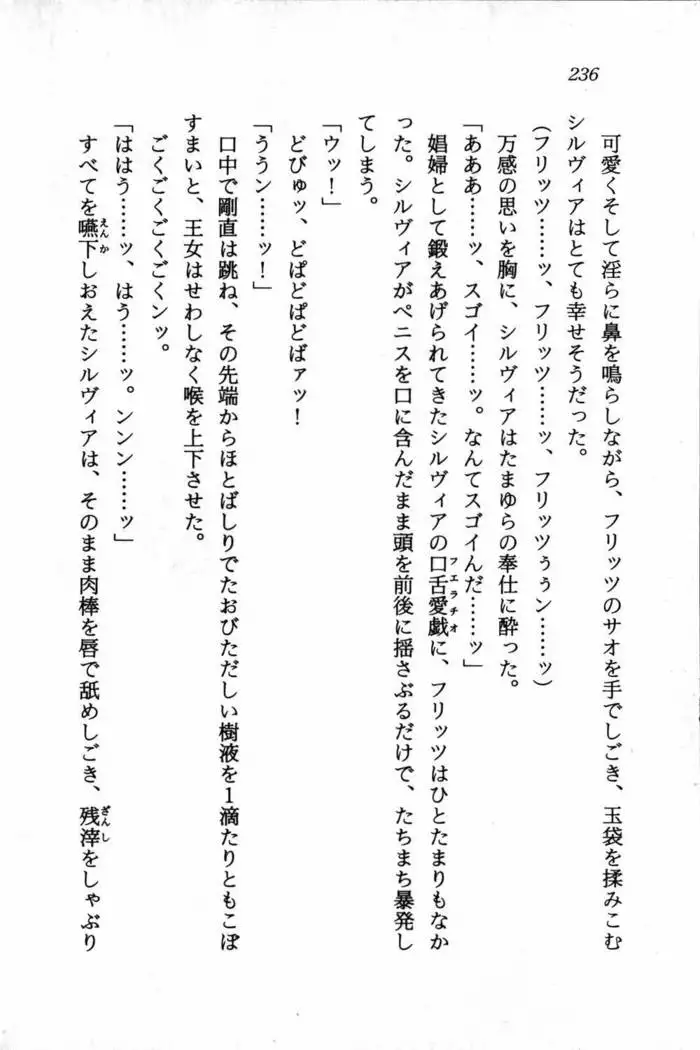 236
可愛くそして淫らに鼻を鳴らしながら、フリッツのサオを手でしごき、玉袋を揉みこむ
シルヴィアはとても幸せそうだった。
(フリッツ……ッ、フリッツ……ッ、フリッツぅぅン……ッ)
万感の思いを胸に、シルヴィアはたまゆらの奉仕に酔った。
「あああ……ッ、スゴイ……ッ。なんてスゴイんだ……ッ」
娼婦として鍛えあげられてきたシルヴィアの口舌愛戯フエラチオに、フリッツはひとたまりもなか
った。シルヴィアがペニスを口に含んだまま頭を前後に揺さぶるだけで、たちまち暴発し
てしまう。
「ウッ！」
どびゅッ、どぱどぱどばァッ！
「ううン……ッ！」
口中で剛直は跳ね、その先端からほとばしりでたおびただしい樹液を１滴たりともこぼ
すまいと、王女はせわしなく喉を上下させた。
ごくごくごくごくンッ。
「ははう……ッ、はう……ッ。ンンン……ッ」
すべてを嚥下えんかしおえたシルヴィアは、そのまま肉棒を唇で舐めしごき、残滓ざんしをしゃぶり